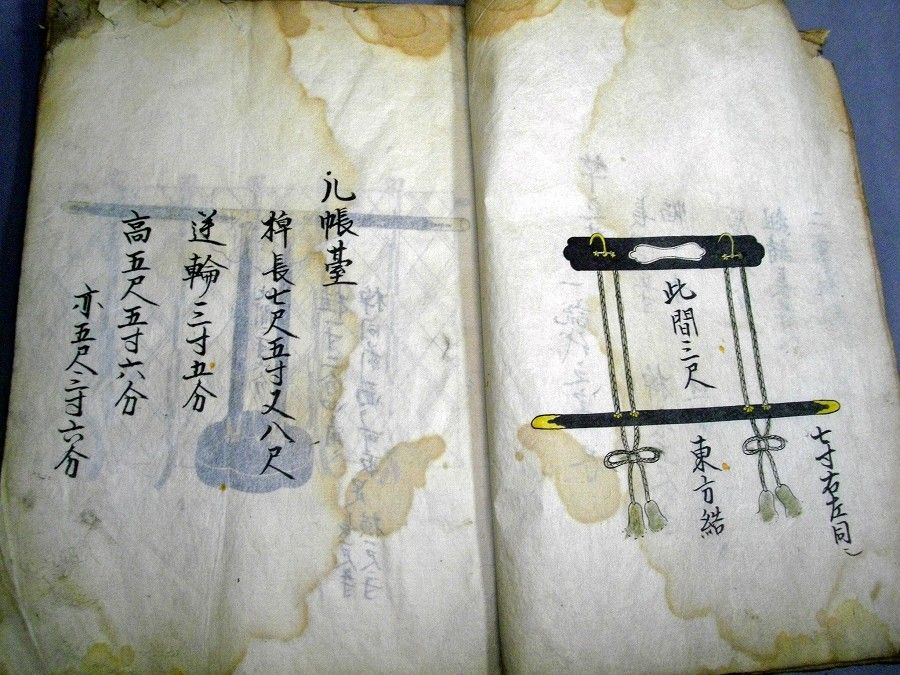 七寸右左同シ
此間三尺
東方結
几帳臺
桿長七尺五寸又八尺
逆輪三寸五分
高五尺五寸六分
亦五尺三寸六分